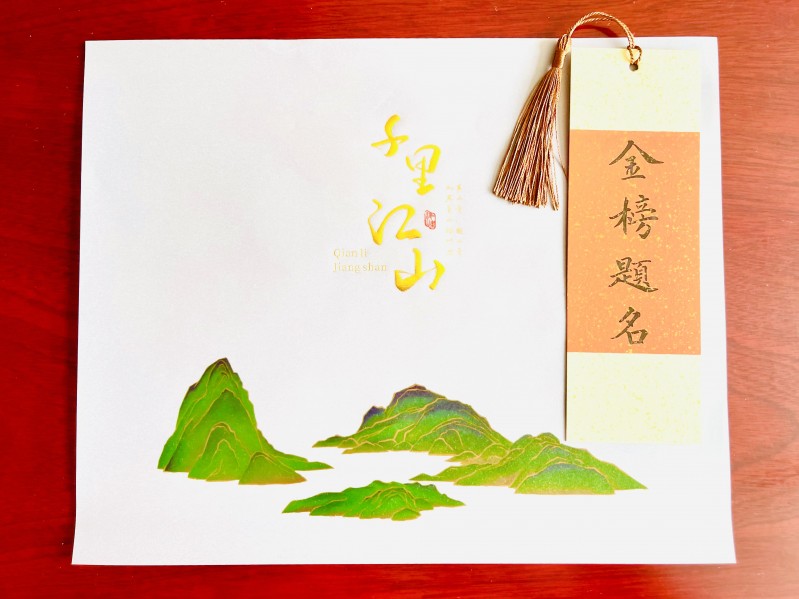 千里江山
Qian li
Jiang shan
金榜題名